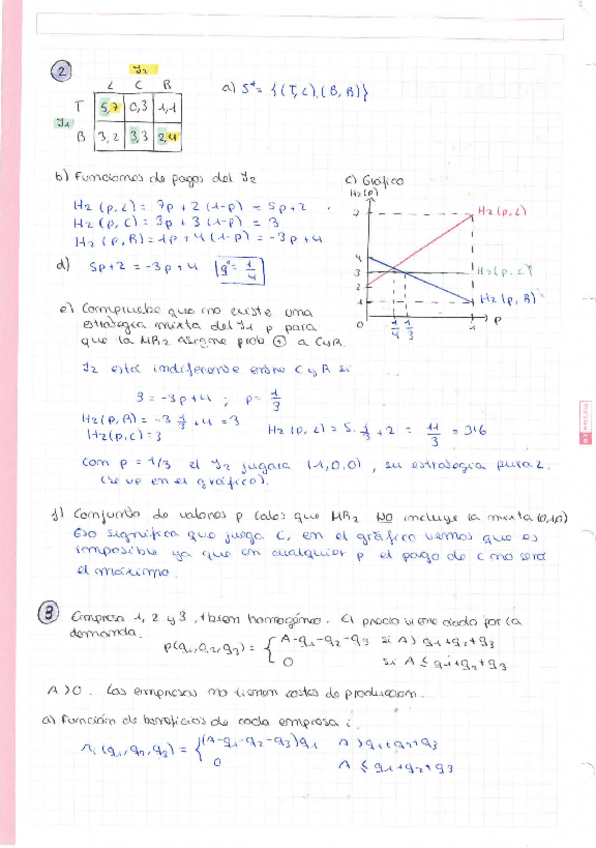 2
J2
L C R
T 5,7 0,3 1,1
J1
B 3,2 3,3 2,4
a) S* = {(T,L),(B,R)}
b) Funciones de pagos del J2
H2 (p,L) = 7p + 2 (1-p) = 5p+2
H2 (p,C) = 3p + 3 (1-p) = 3
H2 (p,R) = 1p + 4 (1-p) = -3p+4
c) Gráfico
H2(p)
7
4
3
2
1
0
1/4 1/3 1 p
H2 (p,L)
H2 (p,C)
H2 (p,R)
d) 5p+2 = -3p+4
e) Compruebe que no existe una
estrategia mixta del J1 p para
que la MR2 asigne prob ⊕ a C y R.
J2 está indiferente entre C y R si
3 = -3p+4 ; p = 1/3
H2 (p,R) = -3 1/3 +4 = 3
H2 (p,C) = 3
H2 (p,L) = 5. 1/3 + 2 = 11/3 = 3'6
con p = 1/3 el J2 jugará (1,0,0), su estrategia pura L.
(se ve en el gráfico).
f) Conjunto de valores p tales que MR2 NO incluye la mixta (0,1,0)
Eso significa que juega C, en el gráfico vemos que es
imposible ya que en cualquier p el pago de C no será
el máximo.
3 Empresa 1, 2 y 3, 1 bien homogéneo. El precio viene dado por la
demanda.
p(q1,q2,q3) = { A-q1-q2-q3 si A > q1+q2+q3
0 si A ≤ q1+q2+q3
A > 0. Las empresas no tienen costes de producción.
a) Función de beneficios de cada empresa i.
π1 (q1,q2,q3) = { (A-q1-q2-q3)q1 A > q1+q2+q3
0 A ≤ q1+q2+q3